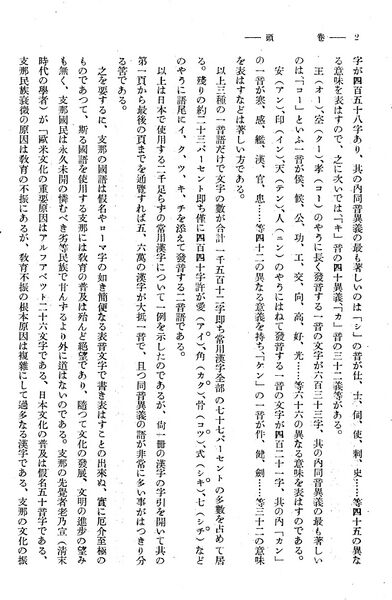 2 ― 卷頭 ―
字が四百五十八字あり、其の內同音異義の最も著しいのは「シ」の音が仕、士、伺、使、刺、史……等四十五の異な
る意味を表はすので、之に次いでは「キ」音の四十異義「カ」音の三十二義等がある。
王（オー）、空（クー）、孝（コー）のやうに長く發音する一音の文字が六百三十三字、其の內同音異義の最も著しい
のは「コー」といふ一音が侯、候、公、功、工、交、向、高、好、光……等六十六の異なる意味を表はすのである。
安（アン）、印（イン）、天（テン）、人（ニン）のやうにはねて發音する一音の文字が四百二十一字、其の內「カン」
の一音が寒、感、艦、漢、官、患……等四十二の異なる意義を持ち「ケン」の一音が件、健、劍……等三十二の意味
を表はすなどは著しい方である。
以上三種の一音語だけで文字の數が合計一千五百十二字卽ち常用漢字全部の七十七パーセントの多數を占めて居
る。殘りの約二十三パーセント卽ち僅に四百四十字許が愛（アイ）、角（カク）、骨（コツ）、式（シキ）、七（シチ）など
のやうに語尾にイ、ク、ツ、キ、チを添えて發音する二音語である。
以上は日本で使用する二千足らずの常用漢字について一例を示したのであるが、尙一冊の漢字の字引を開いて其の
第一頁から最後の頁までを通覽すれば五、六萬の漢字が大抵一音で、且つ同音異義の語が非常に多い事がはつきり分
る筈である。
之を要するに、支那の國語は假名やローマ字の如き簡便なる表音文字で書き表はすことの出來ぬ、實に厄介至極の
ものであつて、斯る國語を使用する支那には敎育の普及は殆んど絕望であり、隨つて文化の發展、文明の進步の望み
も無く、支那國民は永久未開の憐むべき劣等民族で甘んずるより外に道はないのである。支那の先覺者老乃宣（淸末
時代の學者）が「歐米文化の重要原因はアルファベット二十六文字である、日本文化の普及は假名五十音字である、
支那民族衰微の原因は敎育の不振にあるが、敎育不振の根本原因は複雜にして過多なる漢字である、支那の文化の振